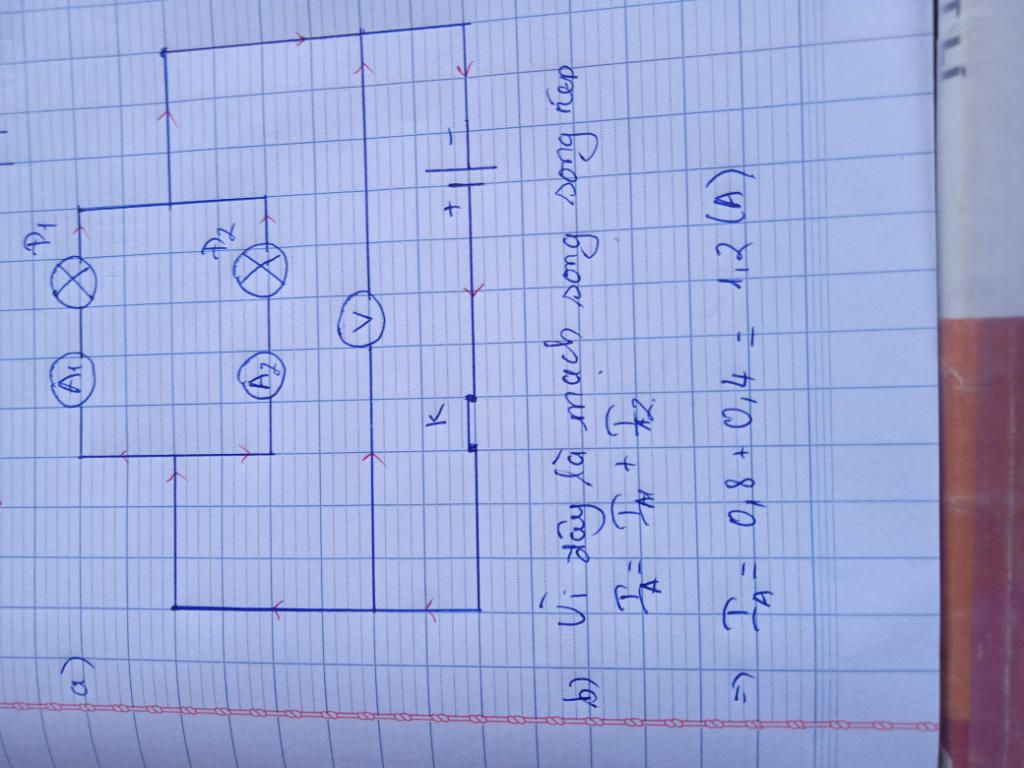 a)
A1
Đ1
A2
Đ2
V
K
+ -
b) Vì đây là mạch song song nên
I_A = I_A1 + I_A2
=> I_A = 0,8 + 0,4 = 1,2 (A)